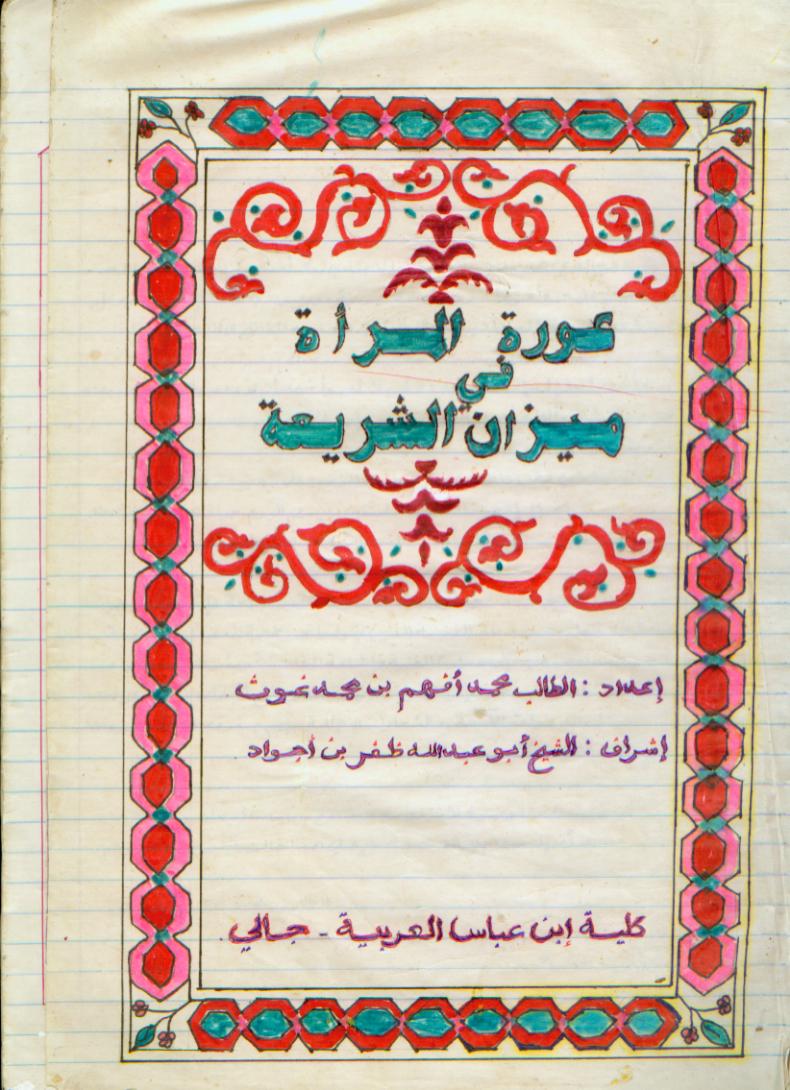 عورة المرأة
في
ميزان الشريعة
إعداد : الطالب محمد أفهم بن محمد غوث
إشراف : الشيخ أبو عبد الله ظفر بن أجواد
كلية إبن عباس العربية - جالي